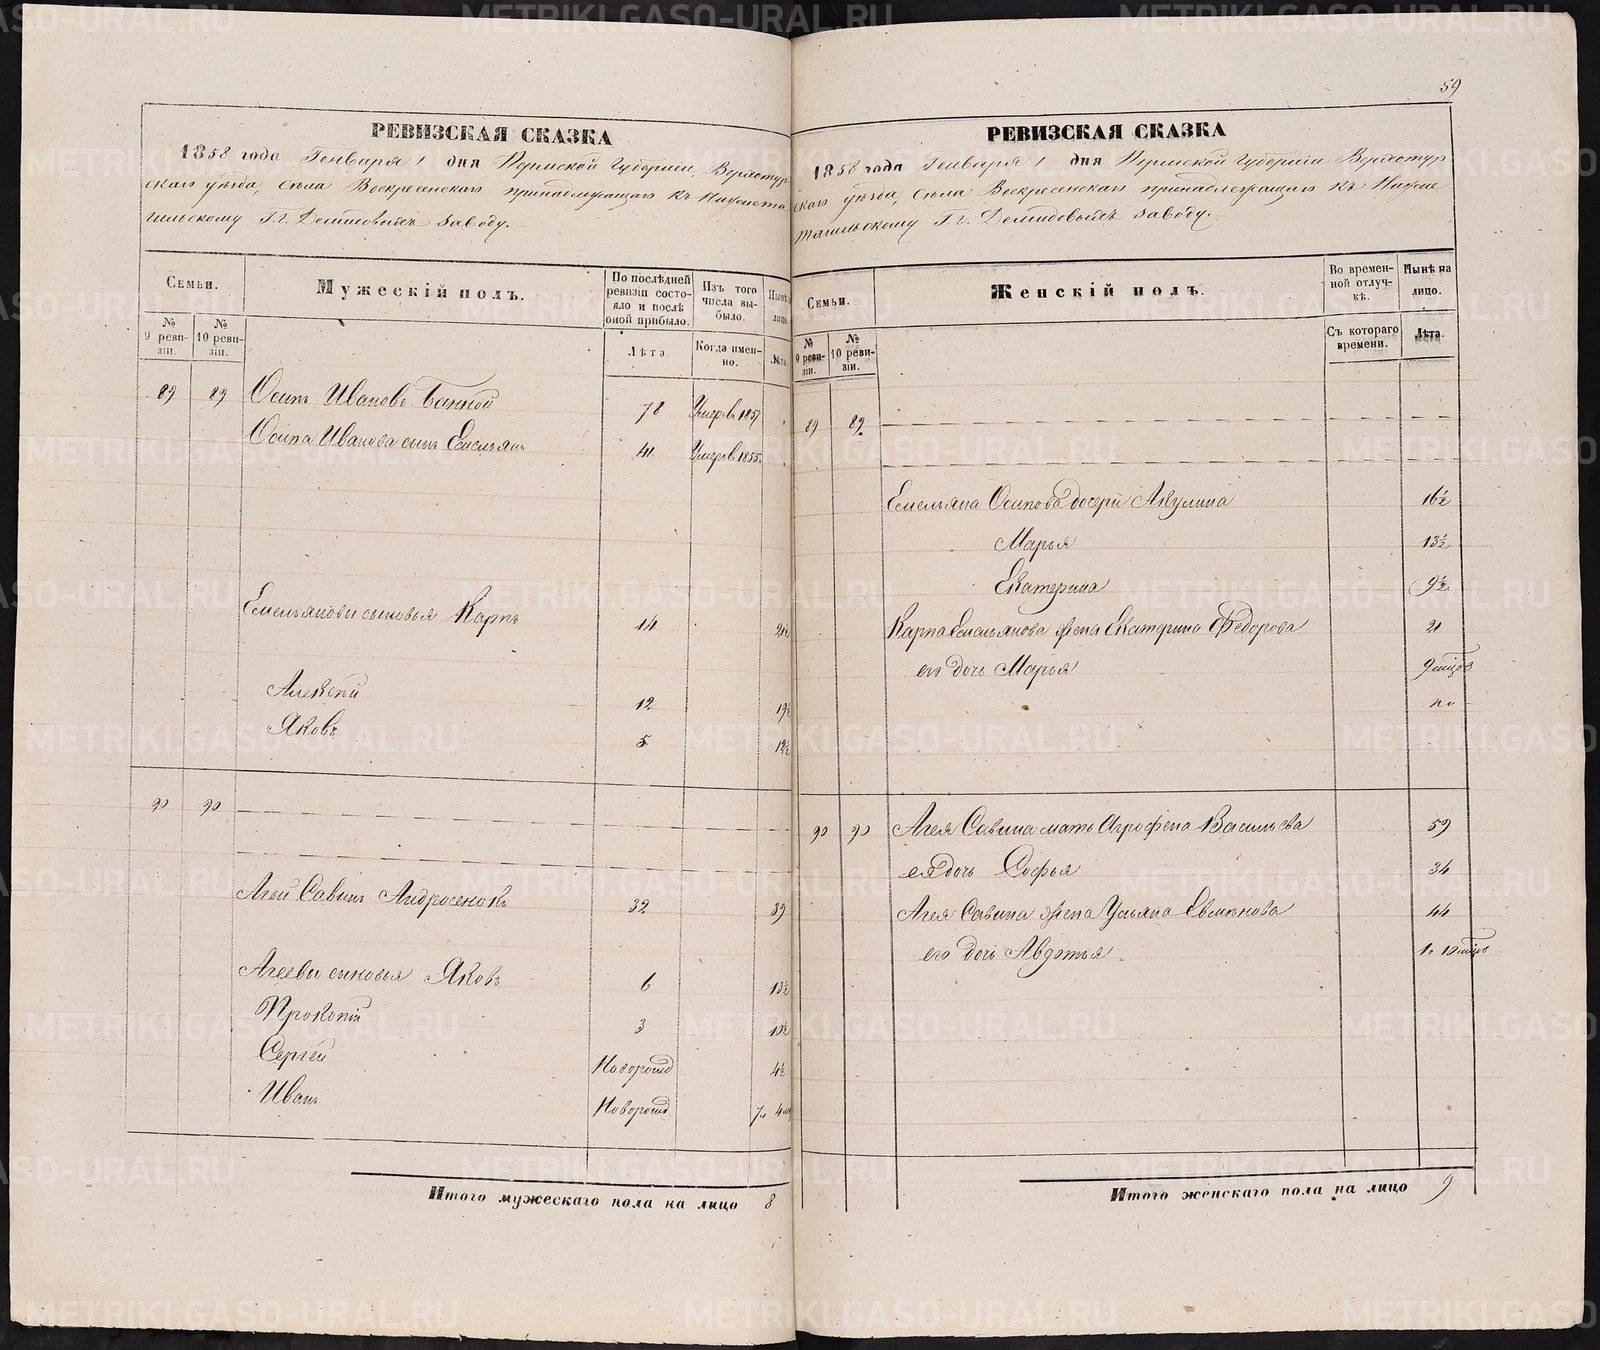 59
РЕВИЗСКАЯ СКАЗКА
1858 года Генваря 1 дня Пермской Губерніи, Верхотур
скаго уѣзда, села Воскресенскаго принадлежащаго къ Нижнета
гильскому Г.г. Демидовыхъ заводу.
Семьи.
Мужескій полъ.
По послѣдней ревизіи состояло и послѣ оной прибыло.
Изъ того числа выбыло.
Нынѣ на лицо.
№ 9 ревизіи.
№ 10 ревизіи.
Лѣта.
Когда именно.
Лѣта.
89 89 Осипъ Ивановъ Банной 78 Умеръ въ 1857
Осипа Иванова сынъ Емельянъ 41 Умеръ въ 1855.
Емельяновы сыновья Карпъ 14 21½
Алексѣй 12 19½
Яковъ 5 12½
90 90
Агей Савинъ Андросеновъ 32 39
Агеевы сыновья Яковъ 6 13½
Прокопій 3 10½
Сергей Новорожд 4½
Иванъ Новорожд
Итого мужескаго пола на лицо 8
РЕВИЗСКАЯ СКАЗКА
1858 года Генваря 1 дня Пермской Губерніи Верхотур
скаго уѣзда, села Воскресенскаго принадлежащаго къ Нижне
тагильскому Г.г. Демидовыхъ заводу.
Семьи.
Женскій полъ.
Во временной отлучкѣ.
Нынѣ на лицо.
№ 9 ревизіи.
№ 10 ревизіи.
Съ котораго времени.
Лѣта.
89 89.
Емельяна Осипова дочери Акулина 16½
Марья 13½
Екатерина 9½
Карпа Емельянова жена Екатерина Федорова 21
его дочь Марья 9 мѣцов
90 90 Агея Савина мать Агрофена Васильева 59
ея дочь Софья 34
Агея Савина жена Ульяна Евсѣнова 44
его дочь Авдотья 1. 10 мѣцов
Итого женскаго пола на лицо 9
METRIKI.GASO-URAL.RU